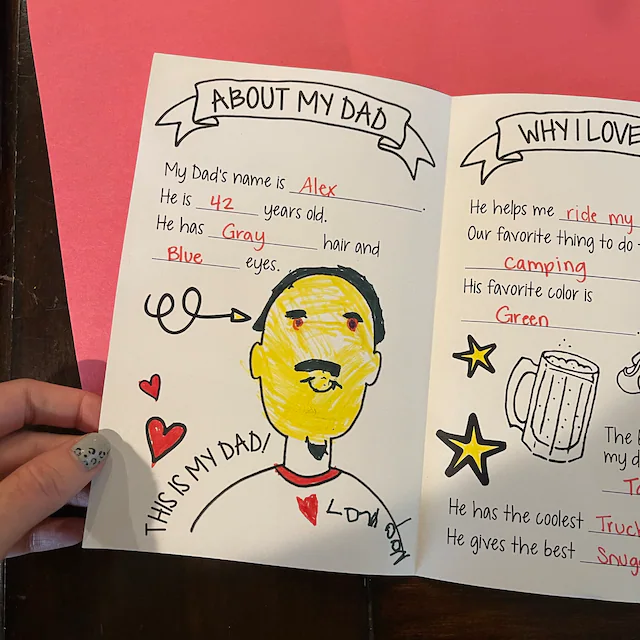 ABOUT MY DAD
My Dad's name is Alex.
He is 42 years old.
He has Gray hair and
Blue eyes.
THIS IS MY DAD!
WHY I LOVE
He helps me ride my
Our favorite thing to do
camping
His favorite color is
Green.
The
my d
He has the coolest Truck
He gives the best Snug